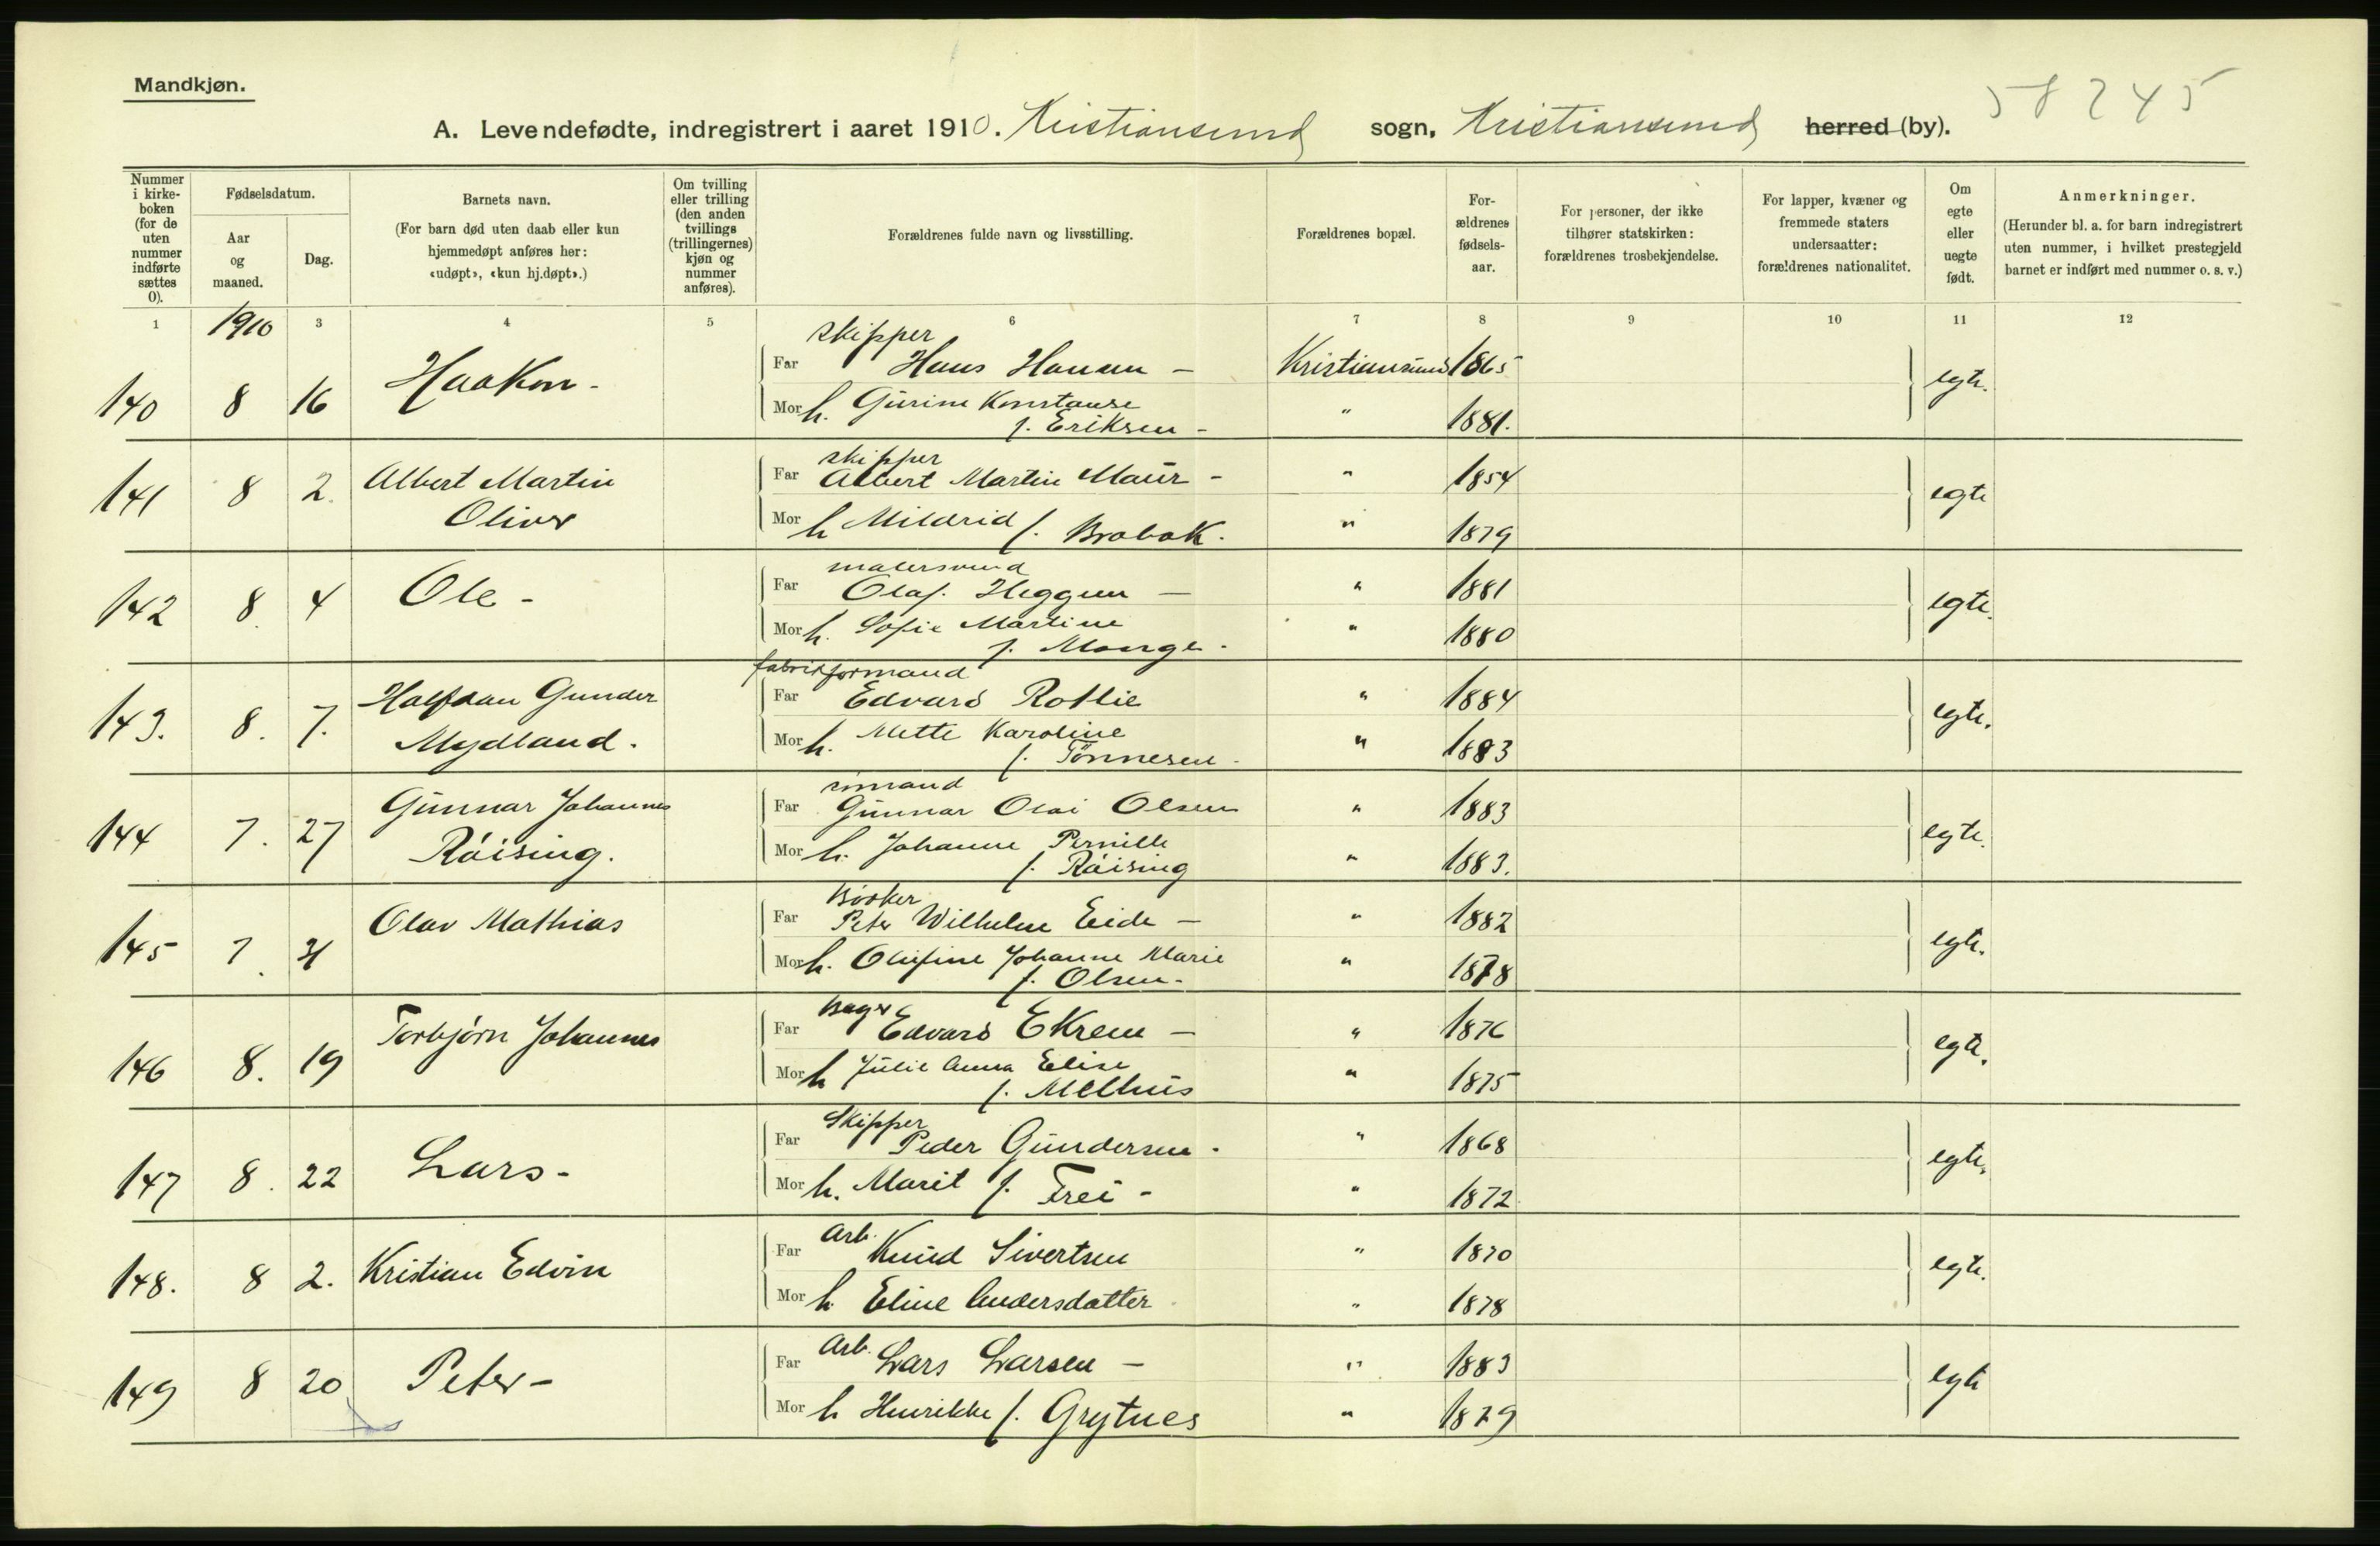 Mandkjøn.
58 245
A. Levendefødte, indregistrert i aaret 1910. Kristiansund sogn, Kristiansund herred (by).
Nummer i kirke-boken (for de uten nummer indførte sættes 0).
Fødselsdatum.
Aar og maaned.
Dag.
Barnets navn.
(For barn død uten daab eller kun hjemmedøpt anføres her: «udøpt», «kun hj.døpt».)
Om tvilling eller trilling (den anden tvillings (trillingernes) kjøn og nummer anføres).
Forældrenes fulde navn og livsstilling.
Forældrenes bopæl.
For-ældrenes fødsels-aar.
For personer, der ikke tilhører statskirken: forældrenes trosbekjendelse.
For lapper, kvæner og fremmede staters undersaatter: forældrenes nationalitet.
Om egte eller uegte født.
Anmerkninger.
(Herunder bl. a. for barn indregistrert uten nummer, i hvilket prestegjeld barnet er indført med nummer o. s. v.)
1 1910 3 4 5 6 7 8 9 10 11 12
skipper
140 8 16 Haakon - Far Hans Hansen - Kristiansund 1865 egte.
Mor h. Gurine Konstanse " 1881.
f. Eriksen -
skipper
141 8 2. Albert Martin Far Albert Martin Maur - " 1854 egte
Oliver Mor h Mildrid f. Brobak. " 1879
malersvend
142 8. 4 Ole - Far Olaf. Heggem - " 1881 egte.
Mor h. Sofie Martine " 1880
f. Mauge -
fabrikformand
143. 8. 7. Halfdan Gunder Far Edvard Rotlie " 1884 egte.
Mydland. Mor h. Mette Karoline " 1883
f. Tønnesen -
sømand
144 7. 27 Gunnar Johannes Far Gunnar Olai Olsen " 1883 egte.
Røising. Mor h. Johanne Pernille " 1883.
f. Røising
Bøsker
145 7. 31 Olav Mathias Far Peter Wilhelm Eide - " 1882 egte.
Mor h. Olufine Johanne Marie " 1878
f. Olsen -
Bager
146 8. 19 Torbjørn Johannes Far Edvard Ekrem - " 1876 egte.
Mor h Julie Anna Elise " 1875
f. Melhus
Skipper
147 8. 22 Lars - Far Peder Gundersen - " 1868 egte.
Mor h. Marit f. Frei - " 1872
Arb.
148. 8 2. Kristian Edvin Far Knud Sivertsen " 1870 egte.
Mor h. Eline Andersdatter " 1878
Arb.
149 8 20 Peter - Far Lars Larsen - " 1883 egte
Mor h Henrikke f. Grytnes " 1879